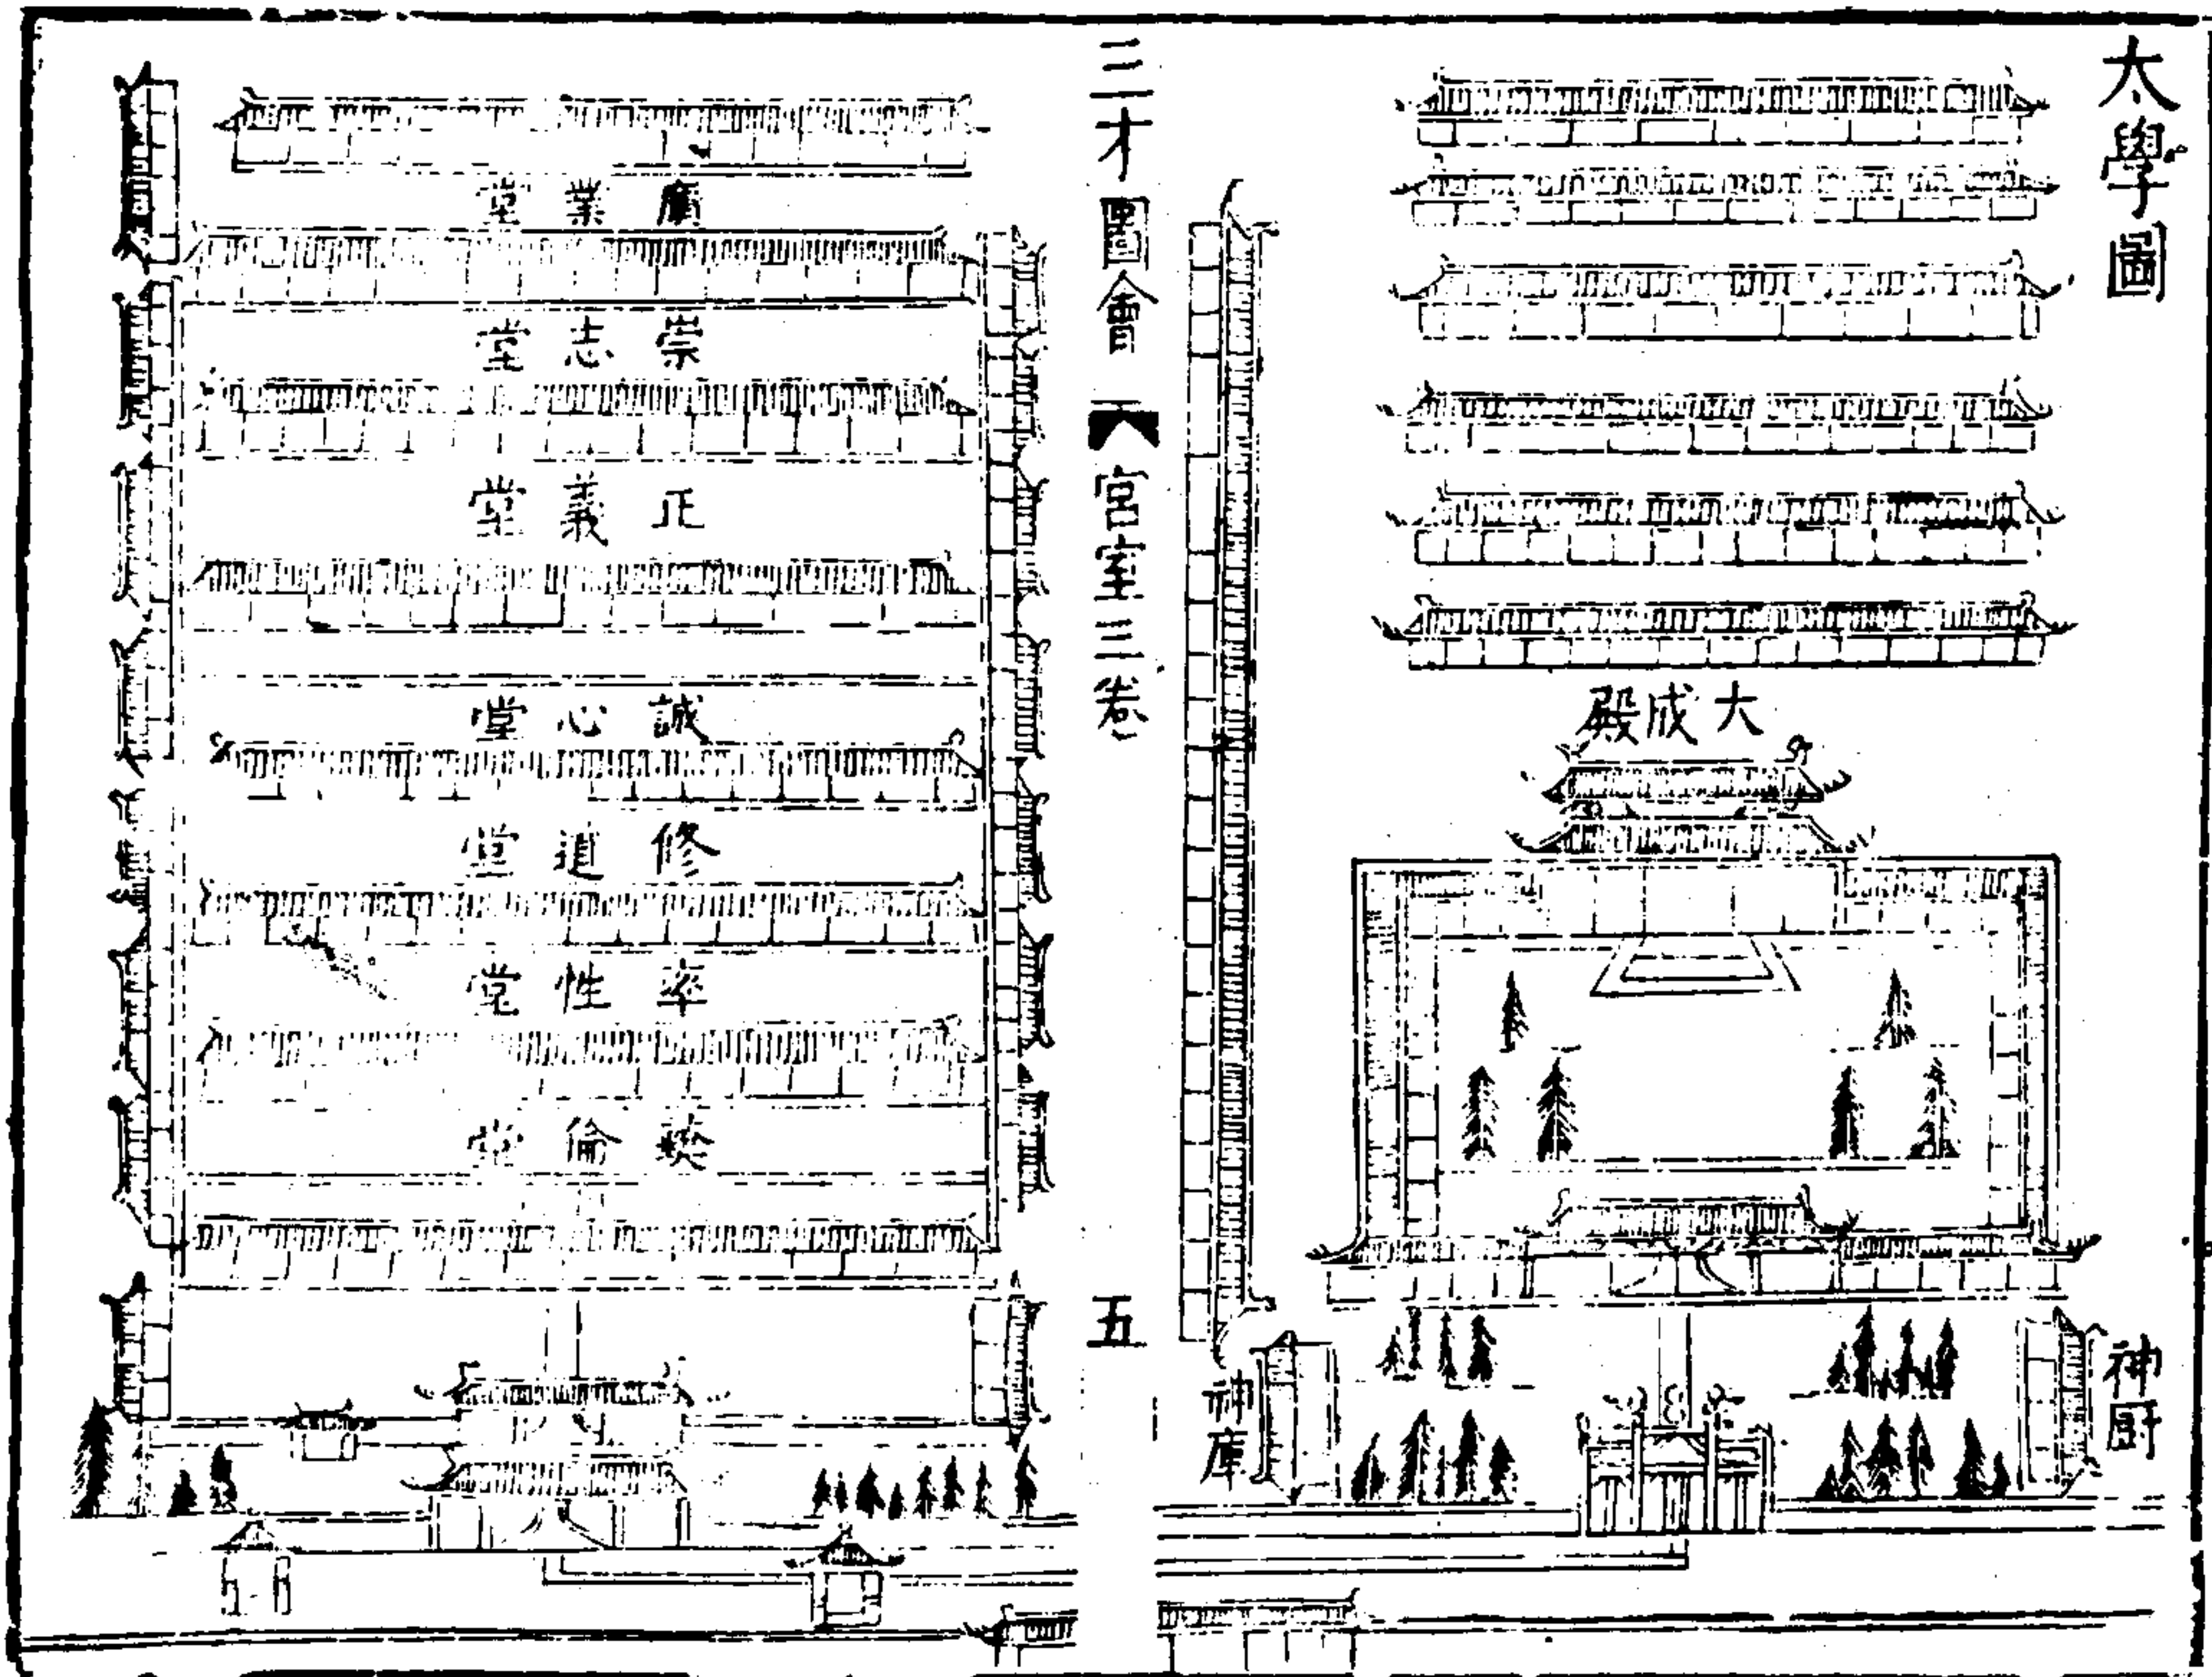 太學圖
大成殿
神廚
神庫
三才圖會
宮室三卷
五
廣業堂
崇志堂
正義堂
誠心堂
修道堂
率性堂
彝倫堂